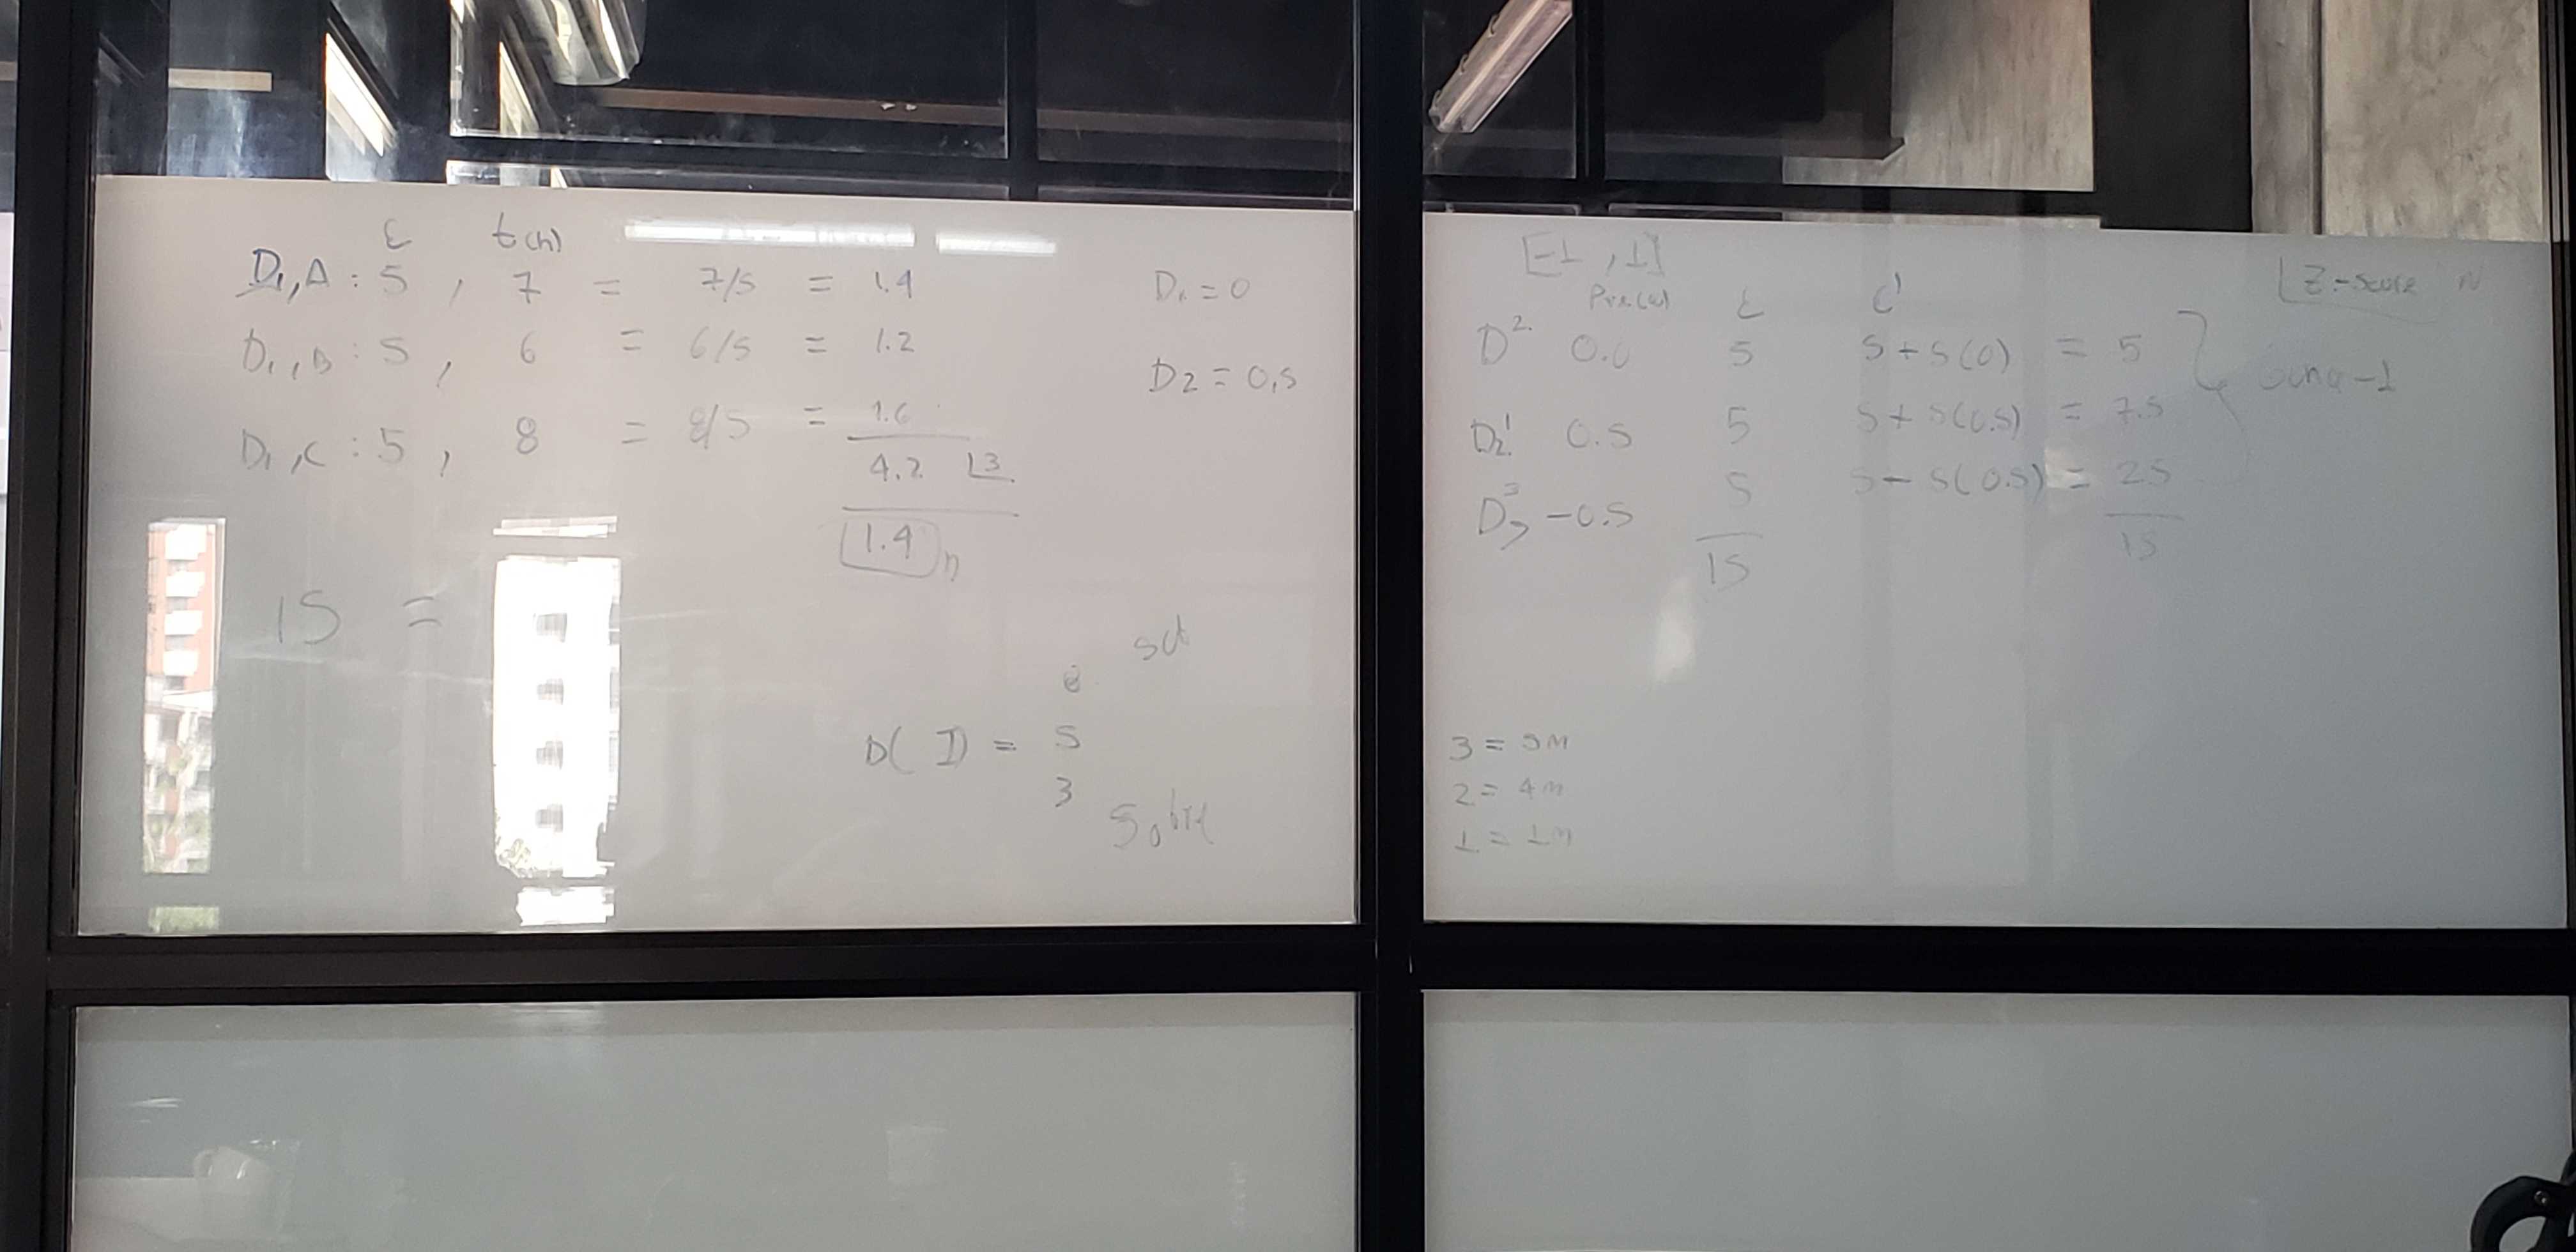 ε t(h)
D1,A : 5 , 7 = 7/5 = 1.4
D1,B : 5 , 6 = 6/5 = 1.2
D1,C : 5 , 8 = 8/5 = 1.6
4.2 3
1.4
15 =
D1 = 0
D2 = 0,5
D( I) = 5
3
[-1 , 1]
ε ε'
D 2. 0.0 5 5+5(0) = 5
D2' 0.5 5 5+5(0.5) = 7.5
D3 3 -0.5 5 5-5(0.5) = 25
15 15
Z-score N
3 = 5M
2 = 4M
1 = 1M